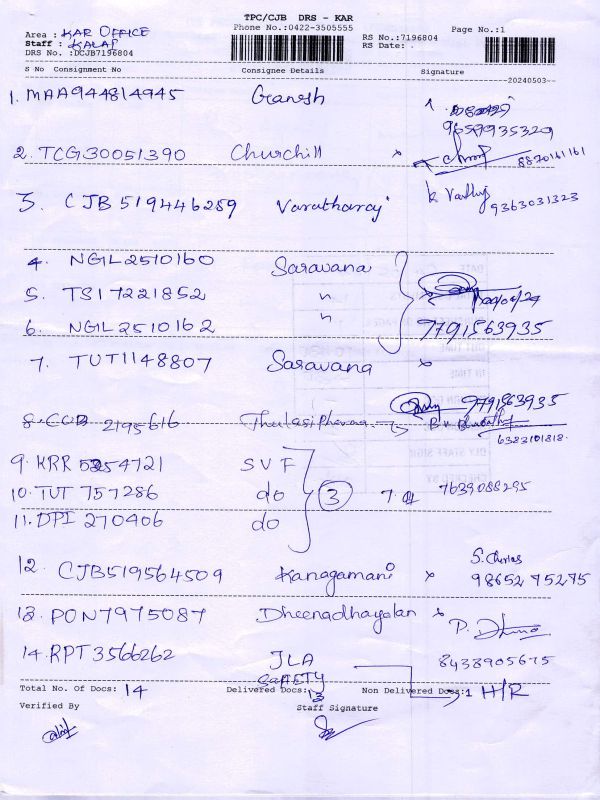 TPC/CJB DRS - KAR
Phone No.:0422-3505555
Page No.:1
Area : KAR OFFICE
RS No.:7196804
Staff : KALAI
RS Date:
DRS No. :DCJB7196804
S No Consignment No Consignee Details Signature
20240503
1. MAA944814945 Ganesh
9659935329
2. TCG30051390 Churchill x
8870161161
3. CJB519446289 Varatharaj
9363031323
4. NGL2510160 Saravana
5. TS17221852 "
6. NGL2510162 " 7791563935
7. TUT1148807 Saravana x
9791563935
2195616
6383101818
9. KRR 5254721 SVF
10. TUT 757286 do 3 7639088295
11. DPI 270406 do
12. CJB519564509 Kanagamani x 98652 75275
13. PON7975087 Dheenadhayalan x
14. RPT3566262 JLA 8438905675
SAFETY
Total No. Of Docs: 14 Delivered Docs: 13 Non Delivered Docs:1 H/R
Verified By Staff Signature